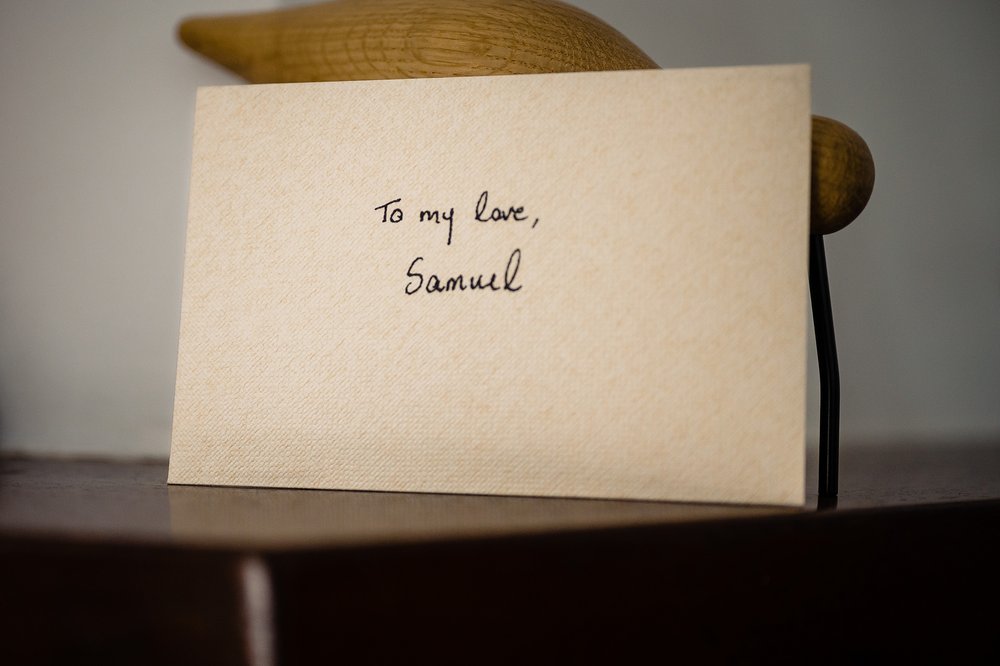 To my love,
Samuel